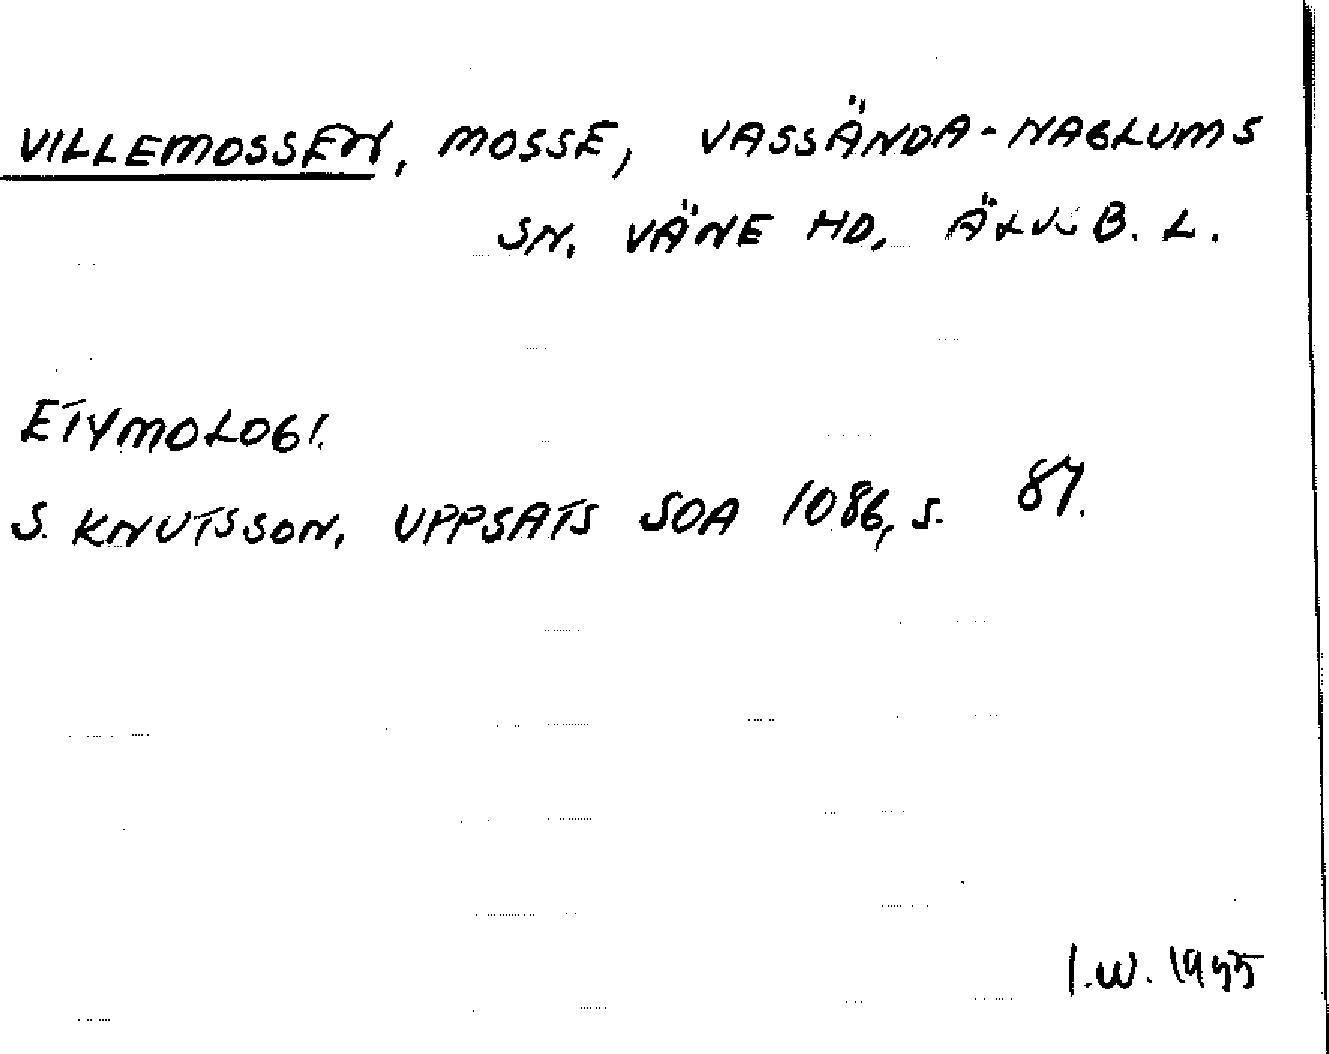 VILLEMOSSEN, MOSSE, VASSÄNDA-NAGLUMS
SN. VÄNE HD, ÄLVSB. L.
ETYMOLOGI.
S. KNUTSSON, UPPSATS SOA 1086, S. 87.
I.W. 1955